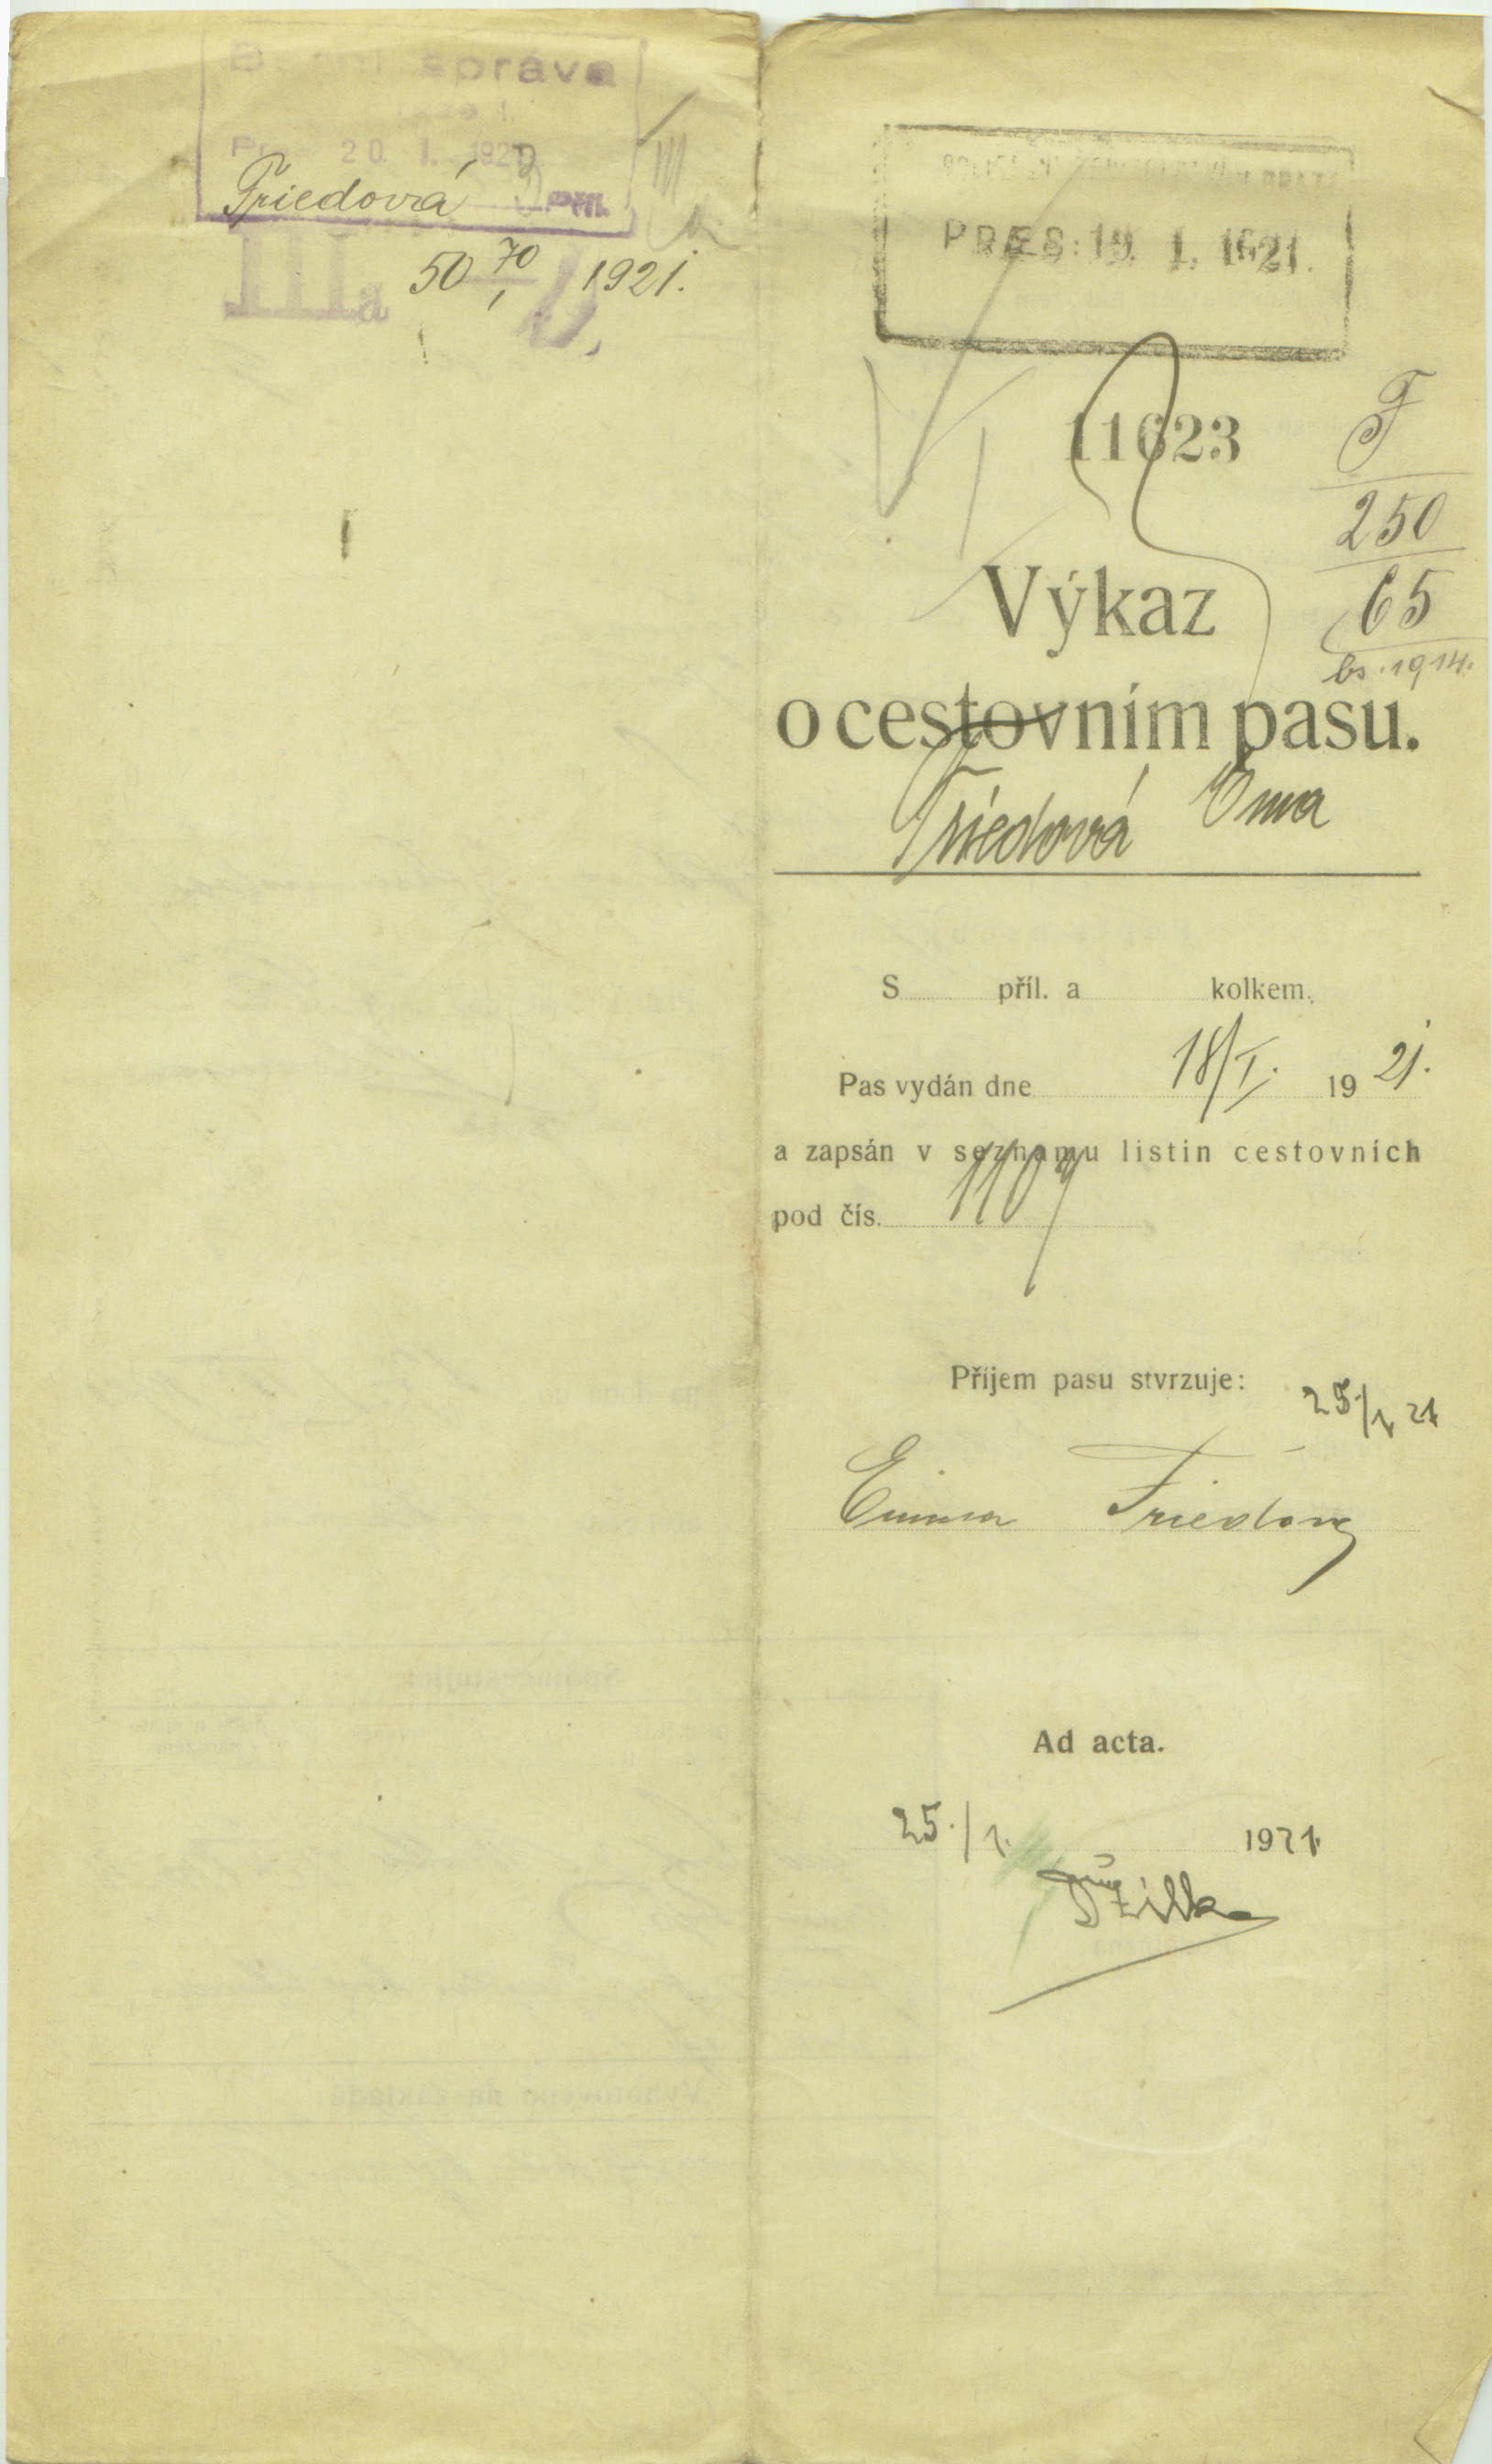 správa
20. I. 192
Friedová
IIIa 50 70/1 1921.
PRAES: 19. 1. 1921.
11623
F
250
65
1914.
Výkaz
o cestovním pasu.
Friedová Ema
S příl. a kolkem.
Pas vydán dne 18/I. 1921.
a zapsán v seznamu listin cestovních
pod čís. 1109
Příjem pasu stvrzuje:
25/1 21
Emma Friedova
Ad acta.
25./1. 1921